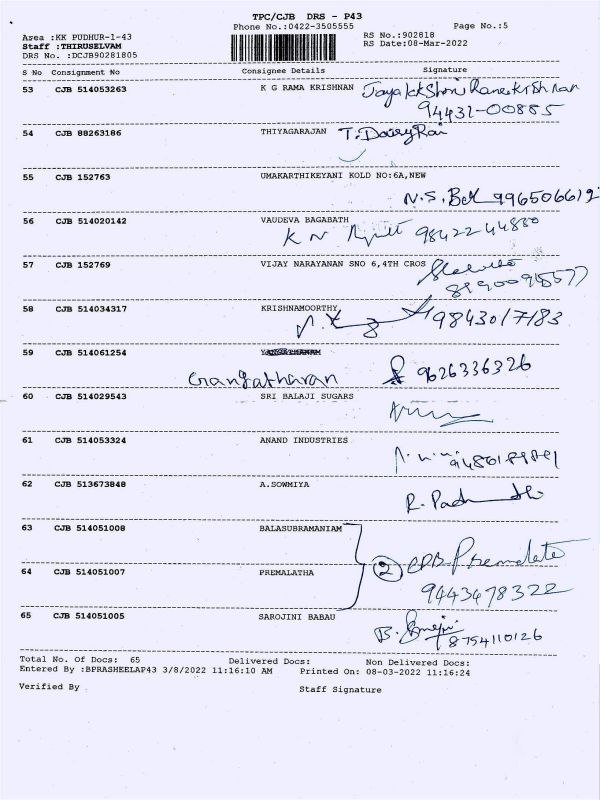 TPC/CJB DRS - P43
Phone No.:0422-3505555
Page No.:5
Area :KK PUDHUR-1-43
Staff :THIRUSELVAM
DRS No. :DCJB90281805
RS No.:902818
RS Date:08-Mar-2022
S No Consignment No Consignee Details Signature
53 CJB 514053263 K G RAMA KRISHNAN
94431-00885
54 CJB 88263186 THIYAGARAJAN T. DaisyRai
55 CJB 152763 UMAKARTHIKEYANI KOLD NO:6A,NEW
N.S.
56 CJB 514020142 VAUDEVA BAGABATH
K N 98422 44880
57 CJB 152769 VIJAY NARAYANAN SNO 6,4TH CROS
58 CJB 514034317 KRISHNAMOORTHY
9843017183
59 CJB 514061254
Gangatharan 9626336326
60 CJB 514029543 SRI BALAJI SUGARS
61 CJB 514053324 ANAND INDUSTRIES
62 CJB 513673848 A.SOWMIYA
63 CJB 514051008 BALASUBRAMANIAM
2 Premalata
64 CJB 514051007 PREMALATHA
9443478322
65 CJB 514051005 SAROJINI BABAU
B. 8754110126
Total No. Of Docs: 65 Delivered Docs: Non Delivered Docs:
Entered By :BPRASHEELAP43 3/8/2022 11:16:10 AM Printed On: 08-03-2022 11:16:24
Verified By Staff Signature